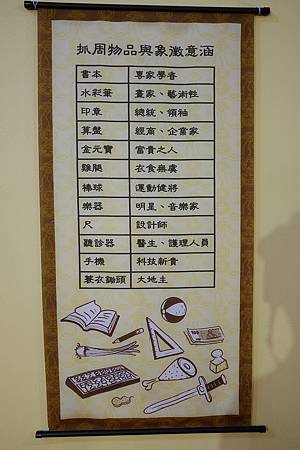 抓周物品與象徵意涵
書本 專家學者
水彩筆 畫家、藝術性
印章 總統、領袖
算盤 經商、企業家
金元寶 富貴之人
雞腿 衣食無虞
棒球 運動健將
樂器 明星、音樂家
尺 設計師
聽診器 醫生、護理人員
手機 科技新貴
蓑衣鋤頭 大地主
100